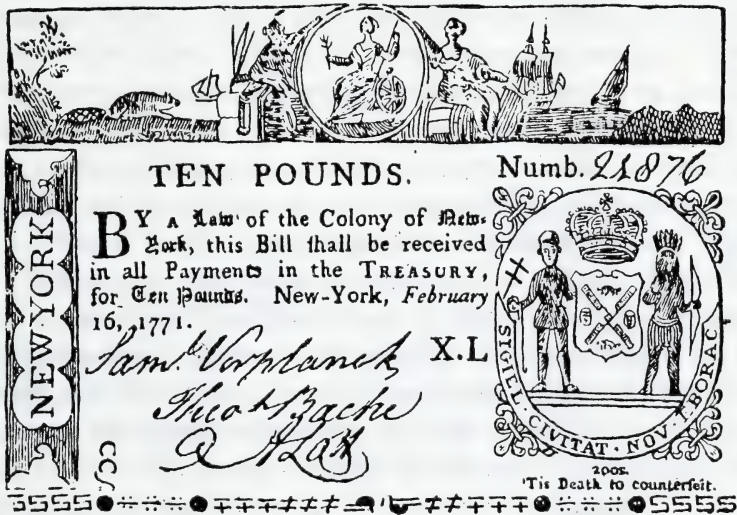 TEN POUNDS.
Numb. 21876
NEW-YORK
BY A Law of the Colony of New-
York, this Bill shall be received
in all Payments in the TREASURY,
for Ten Pounds. New-York, February
16, 1771.
X.L
Saml. Verplanck
Theoh. Bache
SIGILL. CIVITAT. NOV. EBORAC
200s.
'Tis Death to counterfeit.